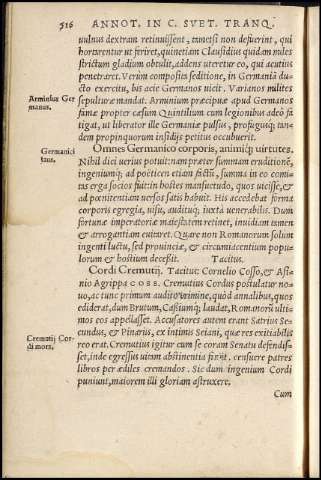 516 ANNOT. IN C. SVET. TRANQ.
uulnus dextram retinuissent, etmetsi non desierint, qui
hortarentur ut feriret, quinetiam Clausidius quidam miles
strictum gladium obtulit, addens uteretur eo, qui acutius
penetraret. Verùm composita seditione, in Germaniã du-
cto exercitu, bis acie Germanos uicit. Varianos milites
Arminius Ger
manus.
sepulturæ mandat. Arminium præcipuæ apud Germanos
famæ propter cæsum Quintilium cum legionibus adeò fa
tigat, ut liberator ille Germaniæ pulsus, profugusq; tan-
dem propinquorum insidijs petitus occubuerit.
Germanici
laus.
Omnes Germanico corporis, animiq́; uirtutes.
Nihil dici uerius potuit: nam præter summam eruditionẽ,
ingeniumq́; ad poëticen etiam factũ, summa in eo comi-
tas erga socios fuit: in hostes mansuetudo, quos uicisse, &
ad pœnitentiam uersos satis habuit. His accedebat forma
corporis egregia, uisu, audituq́; iuxtà uenerabilis. Dum
fortunæ imperatoriæ maiestatem retinet, inuidiam tamen
& arrogantiam euitaret. Quare non Romanorum solùm
ingenti luctu, sed prouinciæ, & circumiacentium popu-
lorum & hostium decessit. Tacitus.
Cordi Cremutij. Tacitus: Cornelio Cosso, & Asi-
nio Agrippa COSS. Cremutius Cordus postulatur no-
uo, ac tunc primùm audito crimine, quòd annalibus, quos
ediderat, dum Brutum, Cassiumq́; laudat, Romanorũ ulti-
mos eos appellasset. Accusatores autem erant Satrius Se-
cundus, & Pinarius, ex intimis Seiani, quæ res exitiabilis
Cremutij Cor-
di mors.
reo erat. Cremutius igitur cum se coram Senatu defendis-
set, inde egressus uitam abstinentia finijt. censuere patres
libros per ædiles cremandos. Sic dum ingenium Cordi
puniunt, maiorem illi gloriam astruxere.
Cum